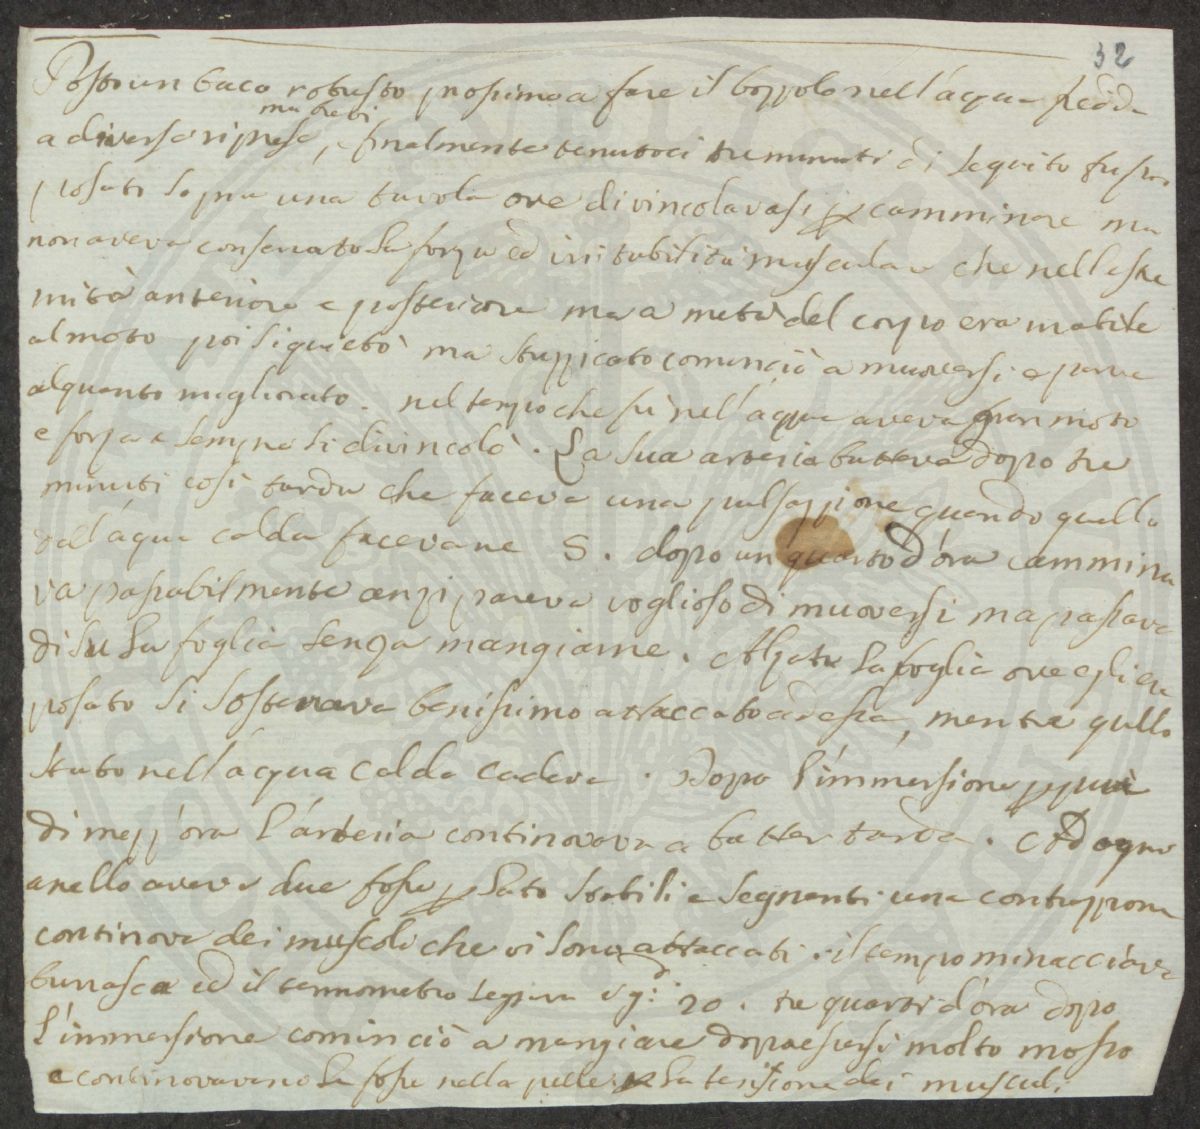 32
Posto un baco robusto prossimo a fare il bozzolo nell'acqua fredda
ma brevi
a diverse riprese, e finalmente tenutoci tre minuti di seguito fu poi
posato sopra una tavola ove divincolavasi per camminare ma
non aveva conservato la forza ed irritabilità muscolare che nell'estre
mità anteriore e posteriore ma a metà del corpo era inabile
al moto poi si quietò ma stuzzicato cominciò a muoversi e parve
alquanto migliorato. nel tempo che fù nell'acqua aveva gran moto
e forza e sempre si divincolò. La sua arteria batteva dopo tre
minuti così tarda che faceva una pulsazzione quando quello
dell'acqua calda facevane 5. dopo un quarto d'ora cammina
va passabilmente anzi pareva voglioso di muoversi ma passava
di su la foglia senza mangiarne. Alzata la foglia ove egli era
posato si sosteneva benissimo attaccato ad essa, mentre quello
stato nell'acqua calda cadeva. Dopo l'immersione per più
di mezz'ora l'arteria continovava a batter tarda. Ad ogni
anello aveva due fosse per lato stabili e segnanti una contrazzione
continova dei muscoli che vi sono attaccati. il tempo minacciava
burrasca ed il termometro segnava 20. tre quarti d'ora dopo
l'immersione cominciò a mangiare dopo essersi molto mosso
e continovavano le fosse nella pelle e la tensione dei muscoli.